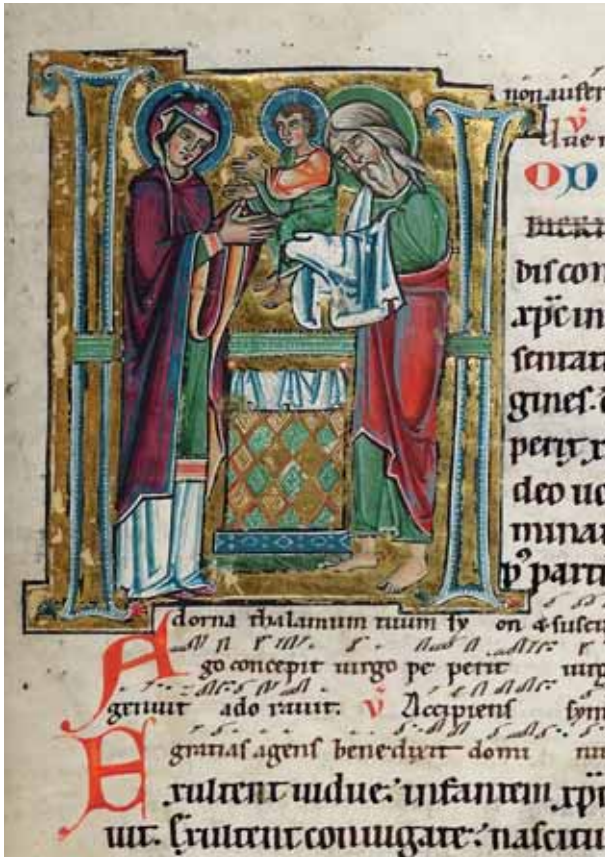 non aufer
due n
bis con
xpc in
sentata
gines.
perit
deo uo
minar
parti
dorna thalamum tuum sy on & susci
Ago concepit uirgo pe perit uirg
genuit ado rauit. v Accipiens sym
gratias agens bene dixit domi nu
Exultent uidue: infantem xp
uit. Exultent coniugate: nascitu